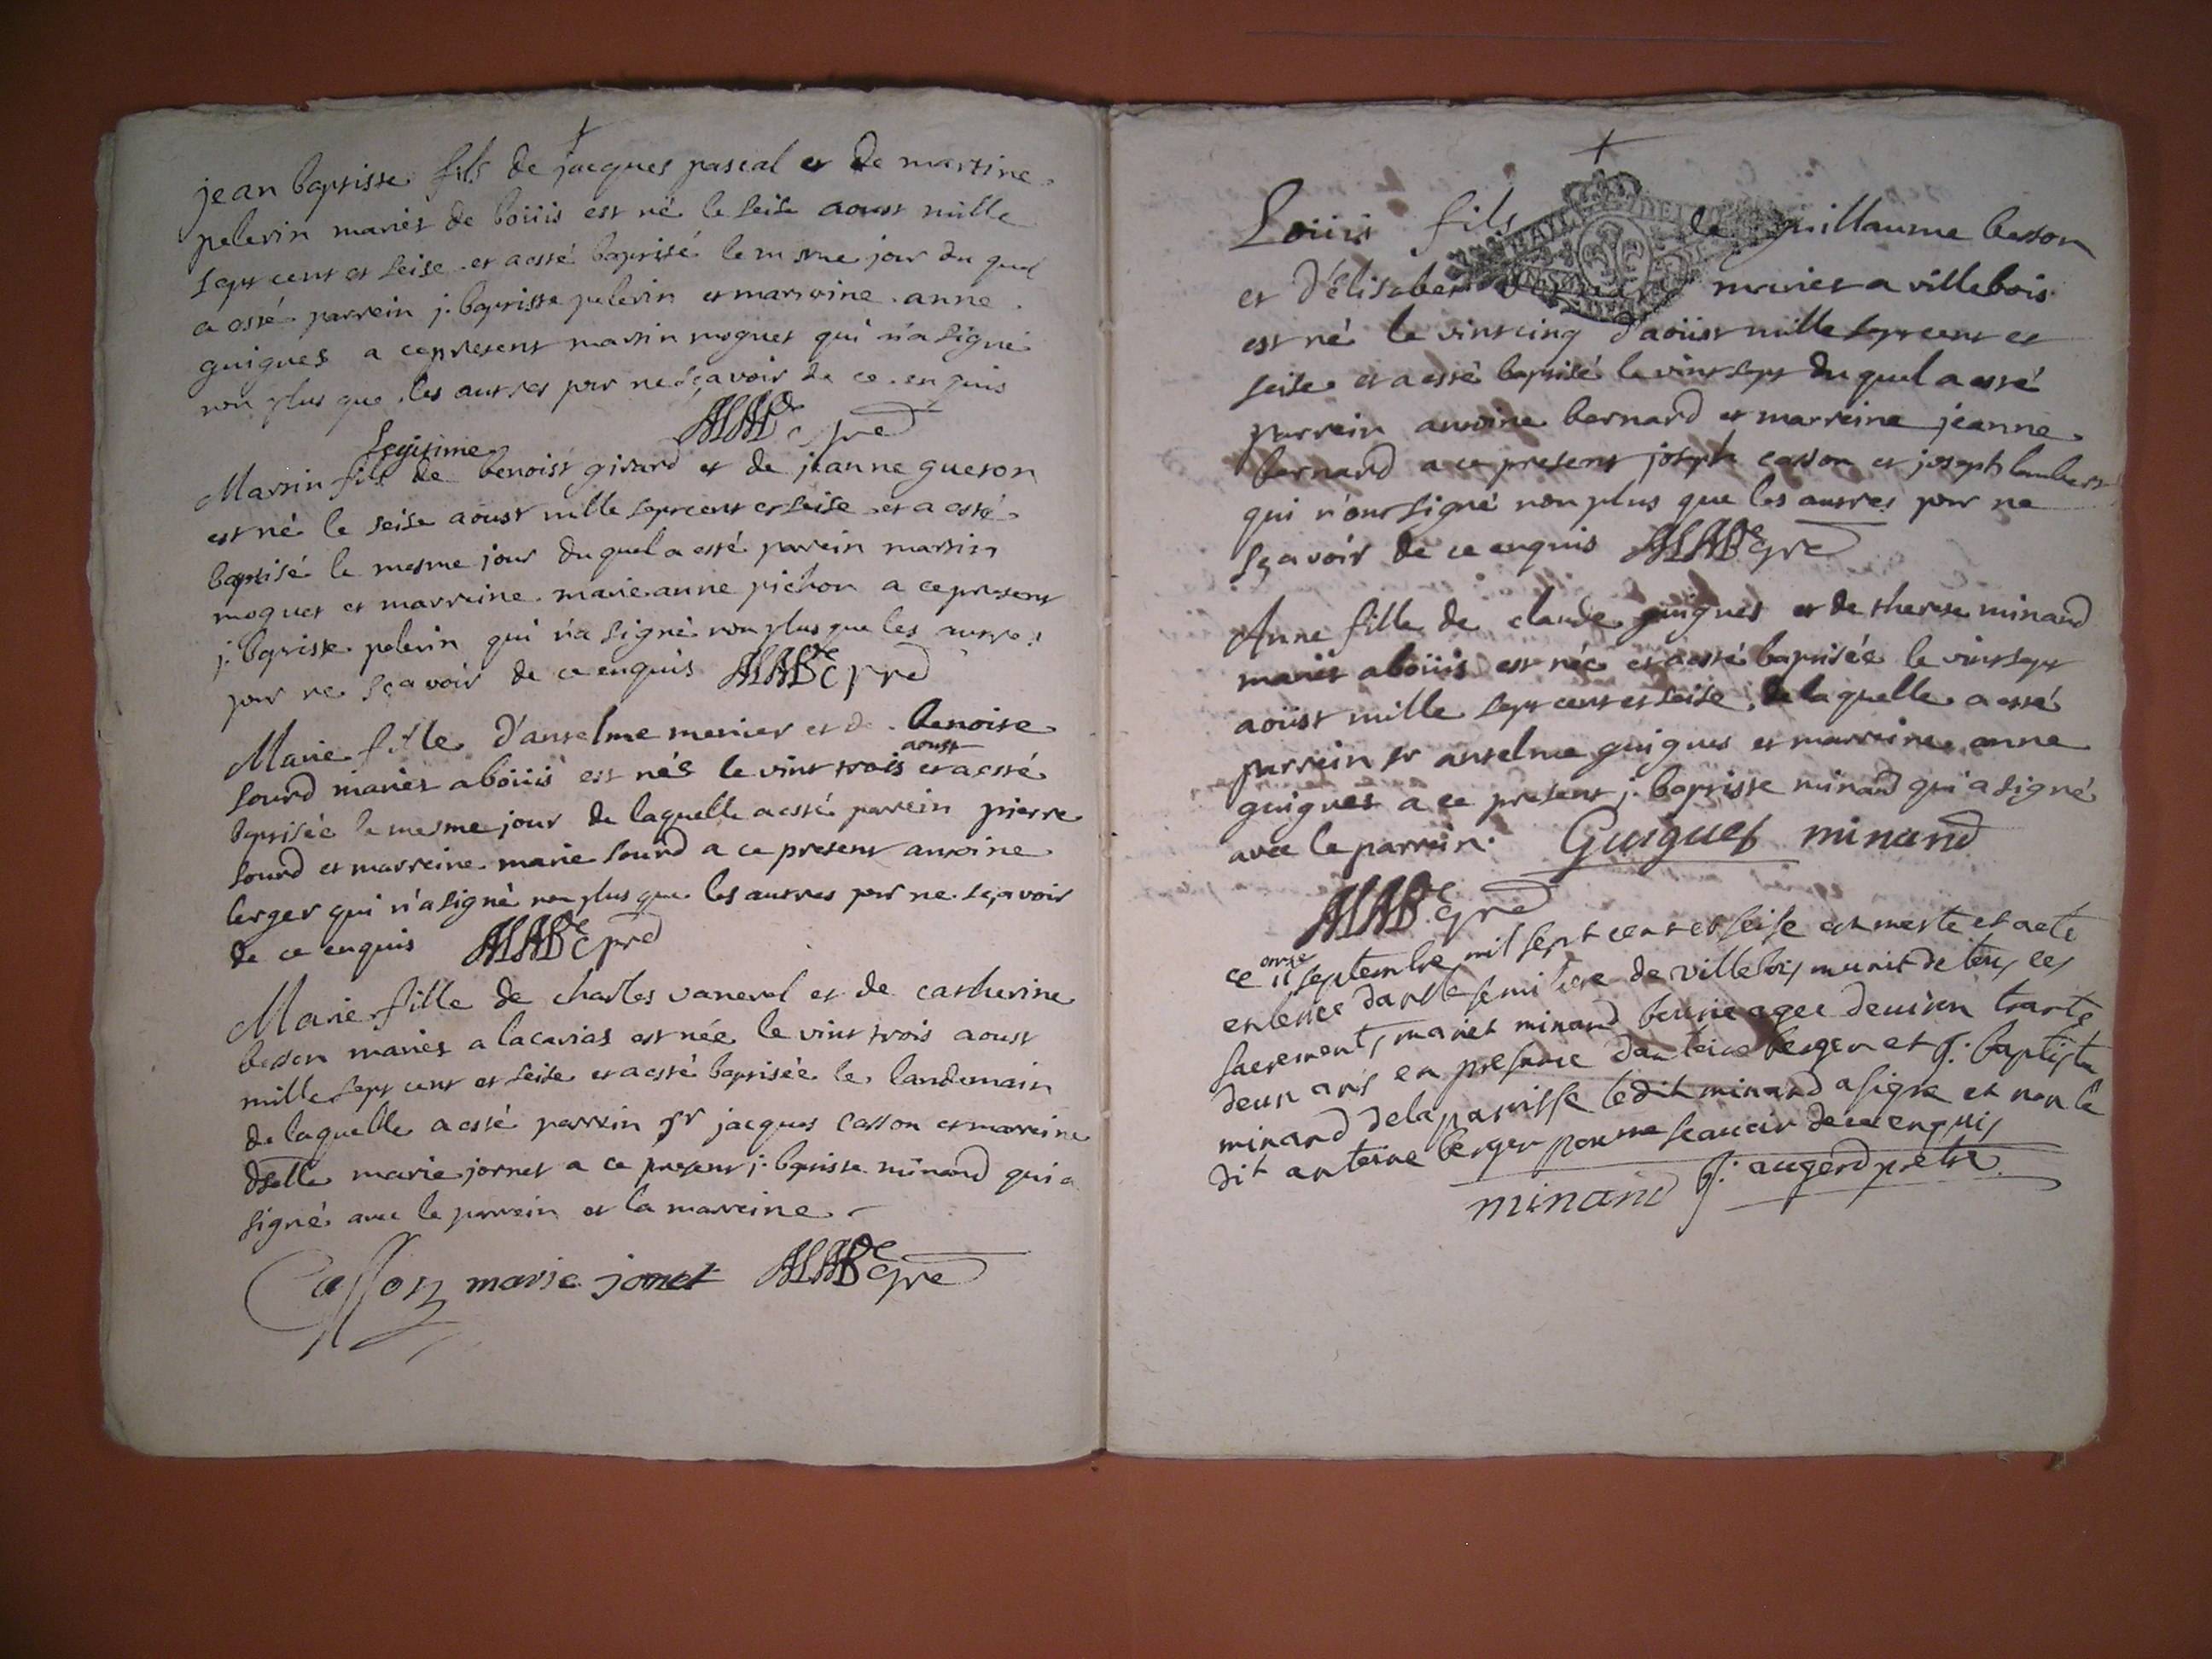 jean baptiste fils de jacques pascal et de martine
pelerin mariés de boüis est né le seise aoust mille
sept cent et seise et a esté baptisé le mesme jour du quel
a esté parrein j. baptiste pelerin et marreine anne
guigues a ce present martin moguet qui n'a signé
non plus que les autres pour ne sçavoir de ce enquis
legitime
Martin fils de benoist girard et de jeanne gueson
est né le seise aoust mille sept cent et seise et a esté
baptisé le mesme jour du quel a esté parrein martin
moguet et marreine marie anne pichon a ce present
j. baptiste pelerin qui n'a signé non plus que les autres
pour ne sçavoir de ce enquis
Marie fille d'anselme menier et de benoite
sourd mariés a boüis est née le vint trois aoust et a esté
baptisée le mesme jour de laquelle a esté parrein pierre
sourd et marreine marie sourd a ce present antoine
berger qui n'a signé non plus que les autres pour ne sçavoir
de ce enquis
Marie fille de charles vanerel et de catherine
besson mariés a lacarias est née le vint trois aoust
mille sept cent et seise et a esté baptisée le landemain
de laquelle a esté parrein sr jacques casson et marreine
dselle marie jornet a ce present j. baptiste minand qui a
signé avec le parrein et la marreine
Casson marie jornet
Loüis fils de guillaume besson
et d'élisabet mariés a villebois
est né le vint cinq d'aoüst mille sept cent et
seise et a esté baptisé le vint sept du quel a esté
parrein antoine bernard et marreine jeanne
bernard a ce present joseph casson et joseph lambert
qui n'ont signé non plus que les autres pour ne
sçavoir de ce enquis
Anne fille de claude guigues et de therese minand
mariés a boüis est née et a esté baptisée le vint sept
aoüst mille sept cent et seise de laquelle a esté
parrein sr anselme guigues et marreine anne
guigues a ce present j. baptiste minand qui a signé
avec le parrein. Guigues minand
ce 11 onze septembre mil sept cent et seise est morte et a ete
enterée dans le semitiere de villebois munit de tous ces
sacrements mariet minand agee denviron trante
deux ans en presance dantoine berger et j: baptiste
minand de la paroisse ledit minand a signe et non le
dit antoine berger pour ne scauoir de ce enquis
minand j: augerd pretre